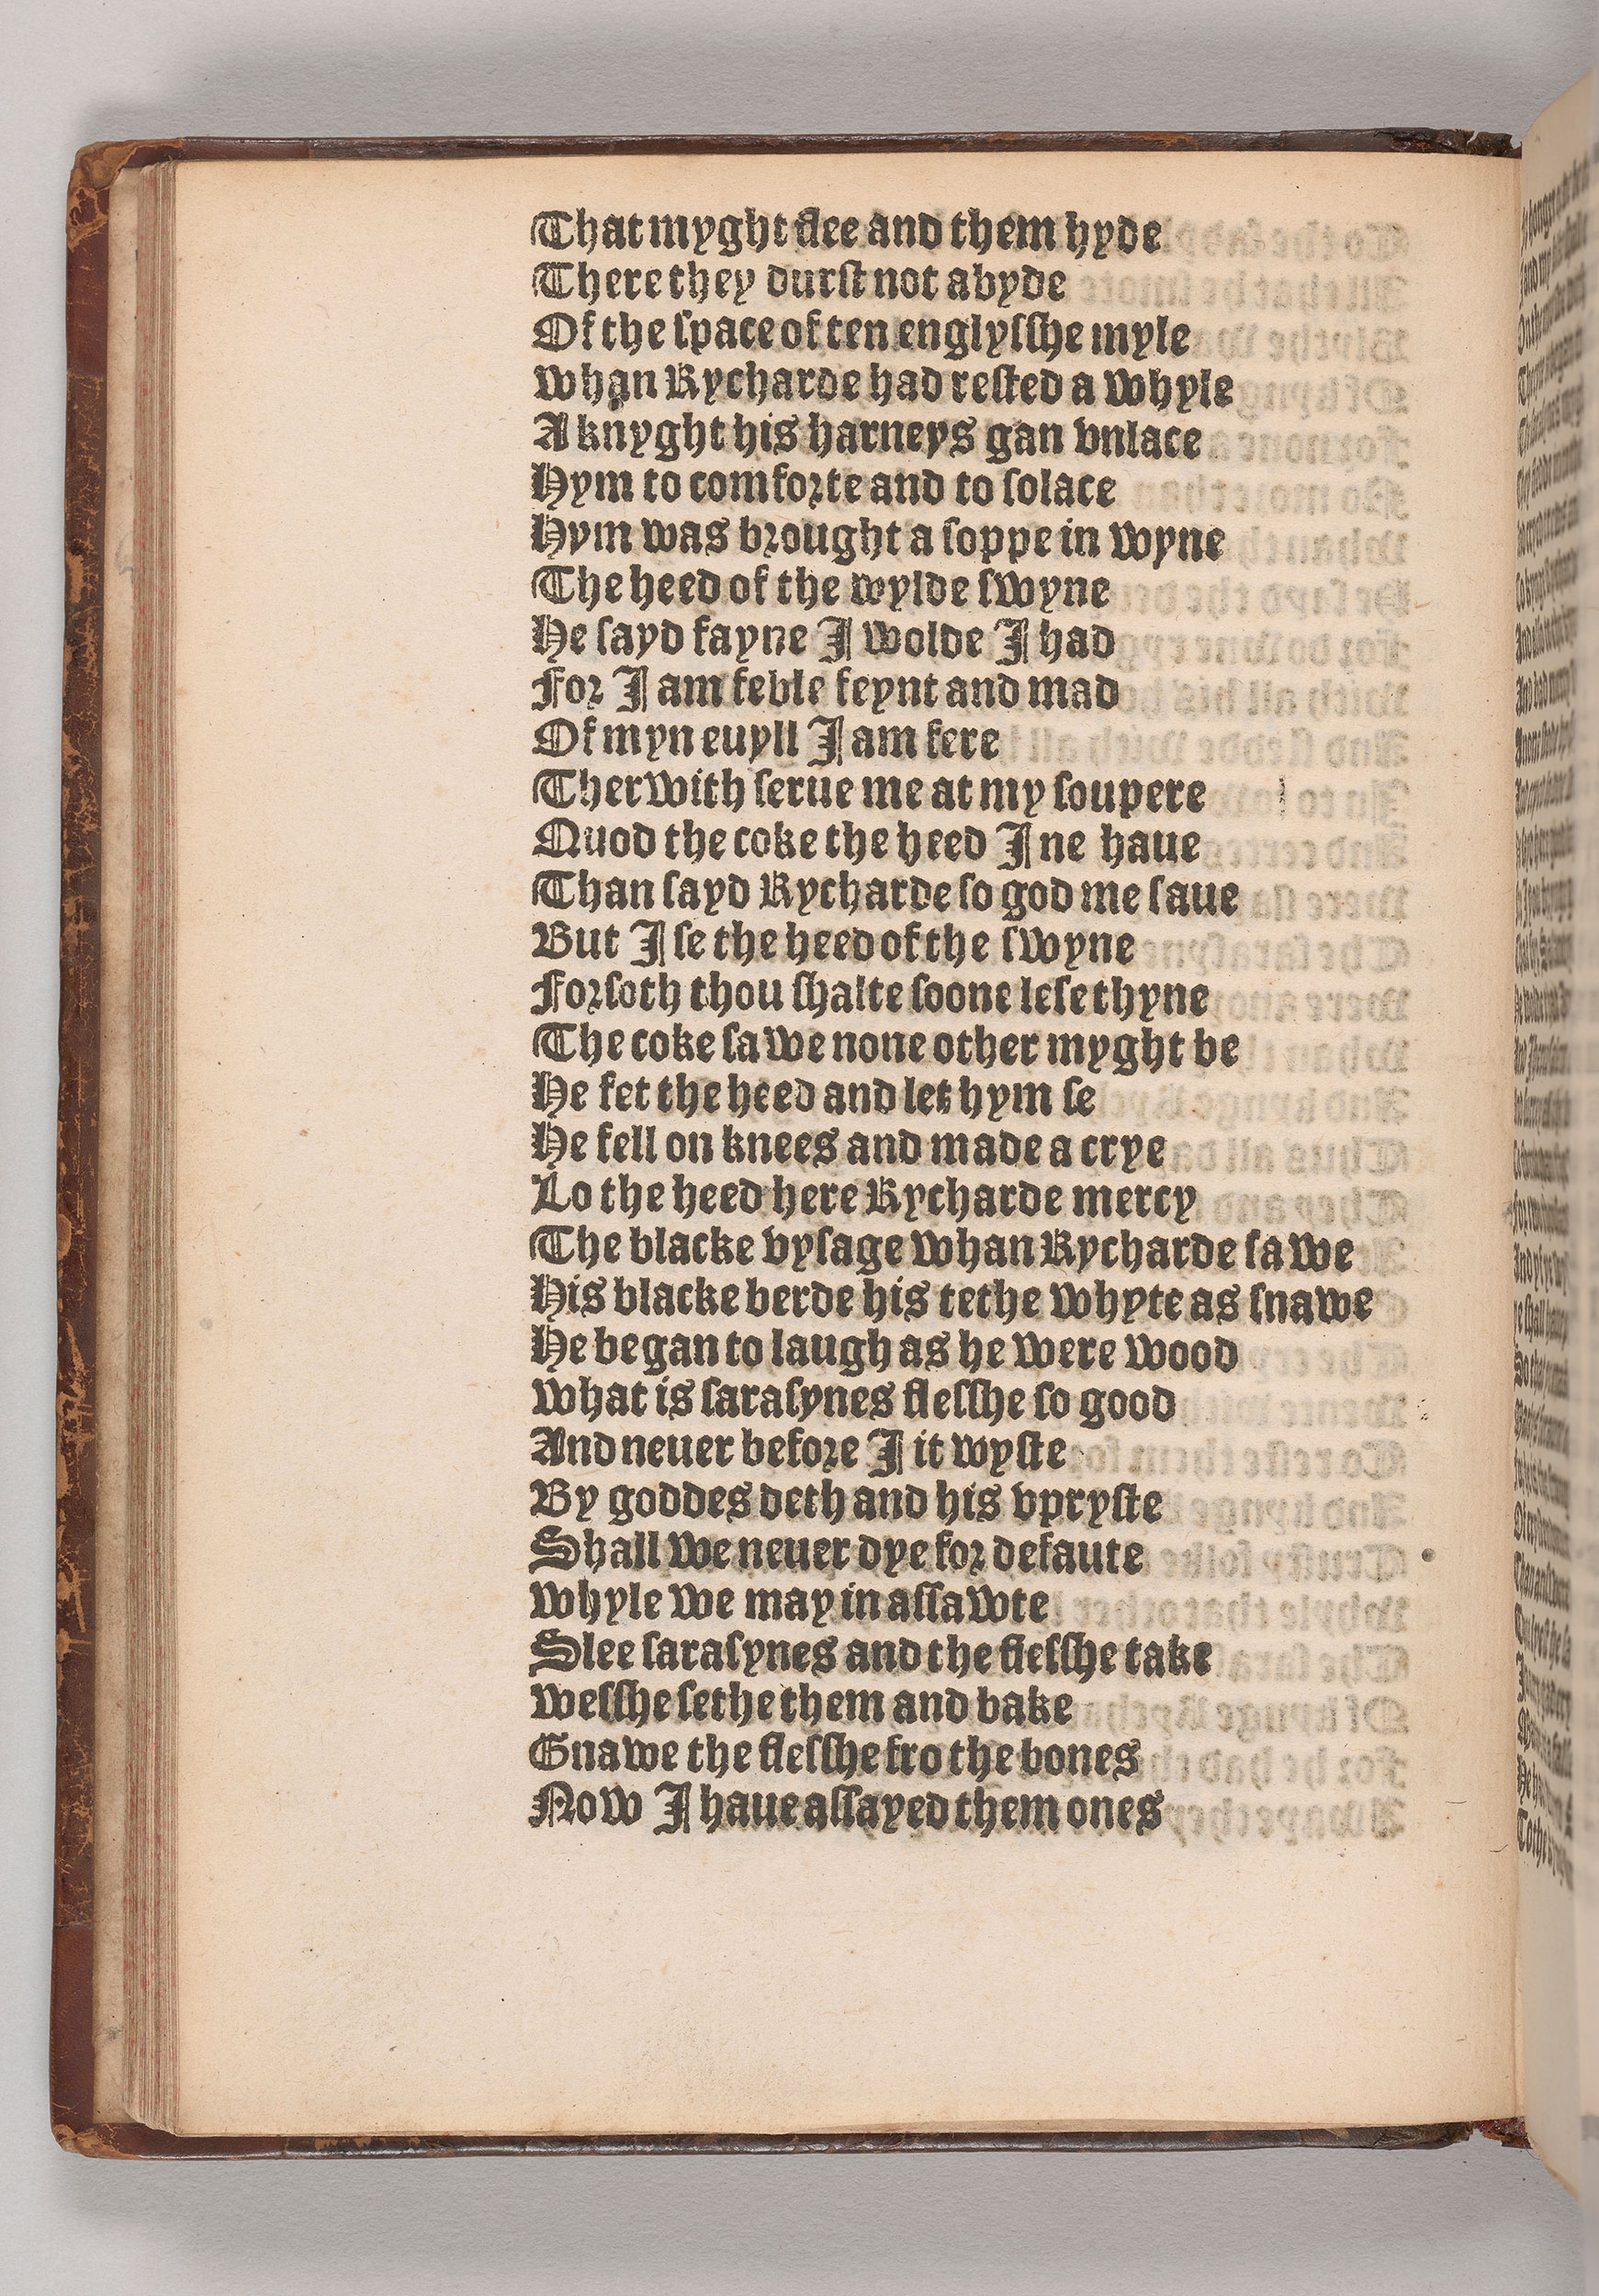 That myght flee and them hyde
There they durſt not abyde
Of the ſpace of ten englyſſhe myle
whan Rycharde had reſted a whyle
A knyght his harneys gan vnlace
Hym to comforte and to ſolace
Hym was brought a ſoppe in wyne
The heed of the wylde ſwyne
He ſayd fayne I wolde I had
For I am feble feynt and mad
Of myn euyll I am fere
Therwith ſerue me at my ſoupere
Quod the coke the heed I ne haue
Than ſayd Rycharde ſo god me ſaue
But I ſe the heed of the ſwyne
Forſoth thou ſhalte ſoone leſe thyne
The coke ſawe none other myght be
He fet the heed and let hym ſe
He fell on knees and made a crye
Lo the heed here Rycharde mercy
The blacke vyſage whan Rycharde ſawe
His blacke berde his tethe whyte as ſnawe
He began to laugh as he were wood
what is ſaraſynes fleſſhe ſo good
And neuer before I it wyſte
By goddes deth and his vpryſte
Shall we neuer dye for defaute
whyle we may in aſſawte
Slee ſaraſynes and the fleſſhe take
weſſhe ſethe them and bake
Gnawe the fleſſhe fro the bones
Now I haue aſſayed them ones